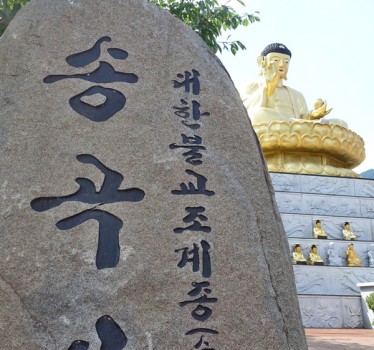 대한불교조계종
송곡